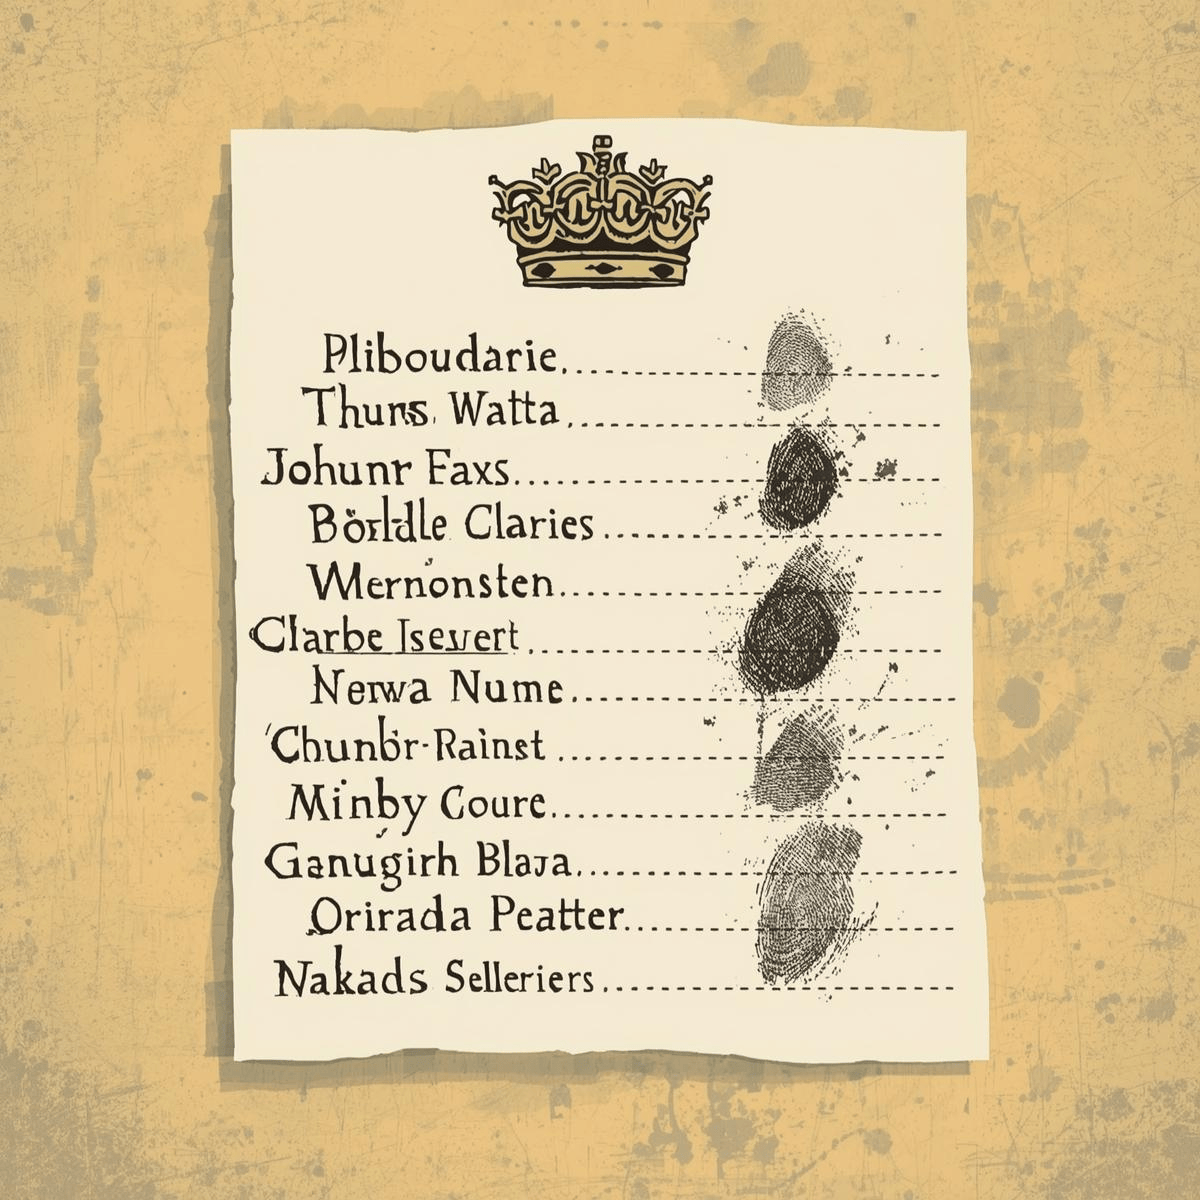 Pliboudarie
Thuns. Watta
Johunr Faxs
Börldle Claries
Mernonsten
Clarbe Isevert
Nerwa Nume
Chunbr-Rainst
Minby Coure
Ganugirh Blaja
Orirada Peatter
Nakads Selleriers